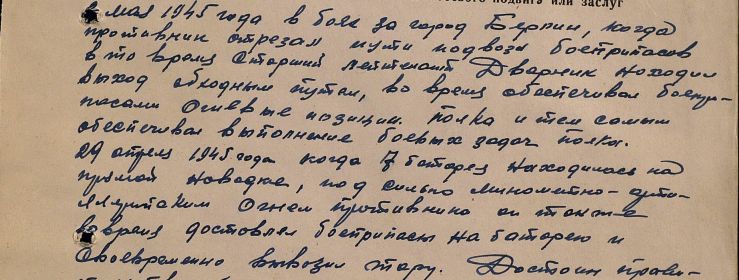 подвига или заслуг
в мая 1945 года в боях за город Берлин, когда
противник отрезал пути подвоза боеприпасов
в то время Старший лейтенант Дварник находил
выход обходным путем, во время обеспечивал боепри-
пасами Огневые позиции полка и тем самым
обеспечивал выполнение боевых задач полка.
29 апреля 1945 года когда 7 батарея находилась на
прямой наводке, под сильно минометно-арти-
ллерийским огнем противника он также
вовремя доставлял боеприпасы на батарею и
своевременно вывозил тару. Достоин прави-